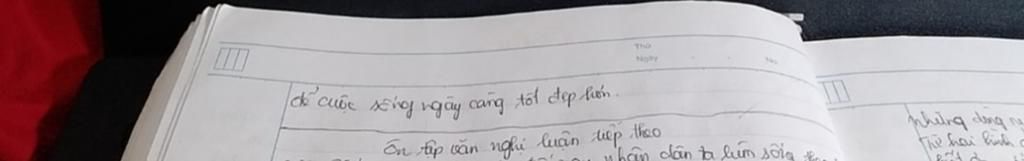 Thứ
Ngày . . No
để cuộc sống ngày càng tốt đẹp hơn.
Ôn tập văn nghị luận tiếp theo
nhân dân ta
những dòng